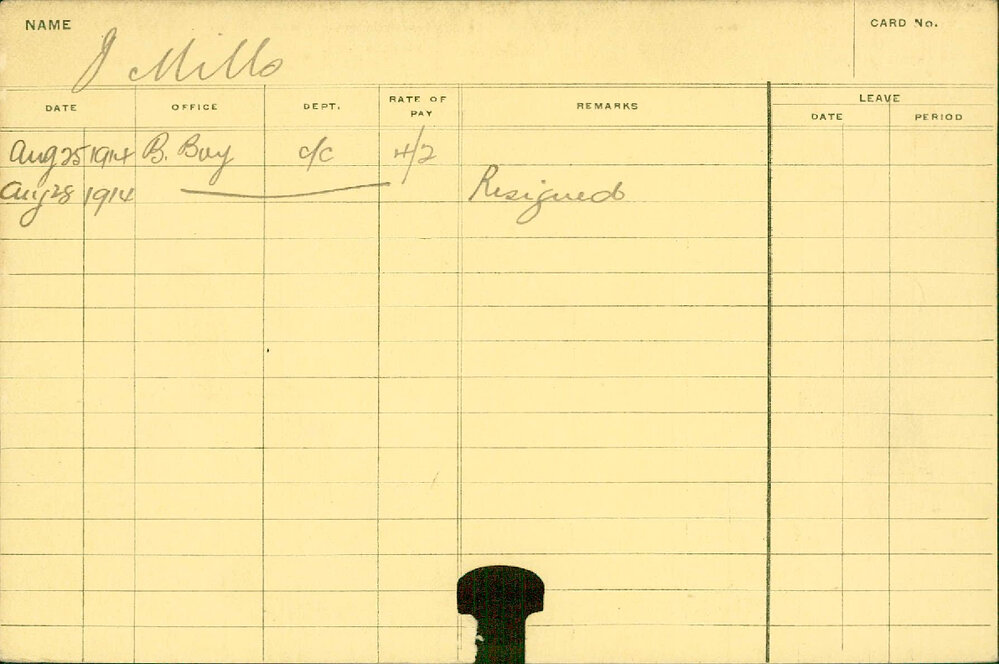 NAME
J Mills
CARD No.
DATE OFFICE DEPT. RATE OF PAY REMARKS LEAVE
DATE PERIOD
Aug 25 1914 B. Bay c/c 4/2
Aug 28 1914 Resigned